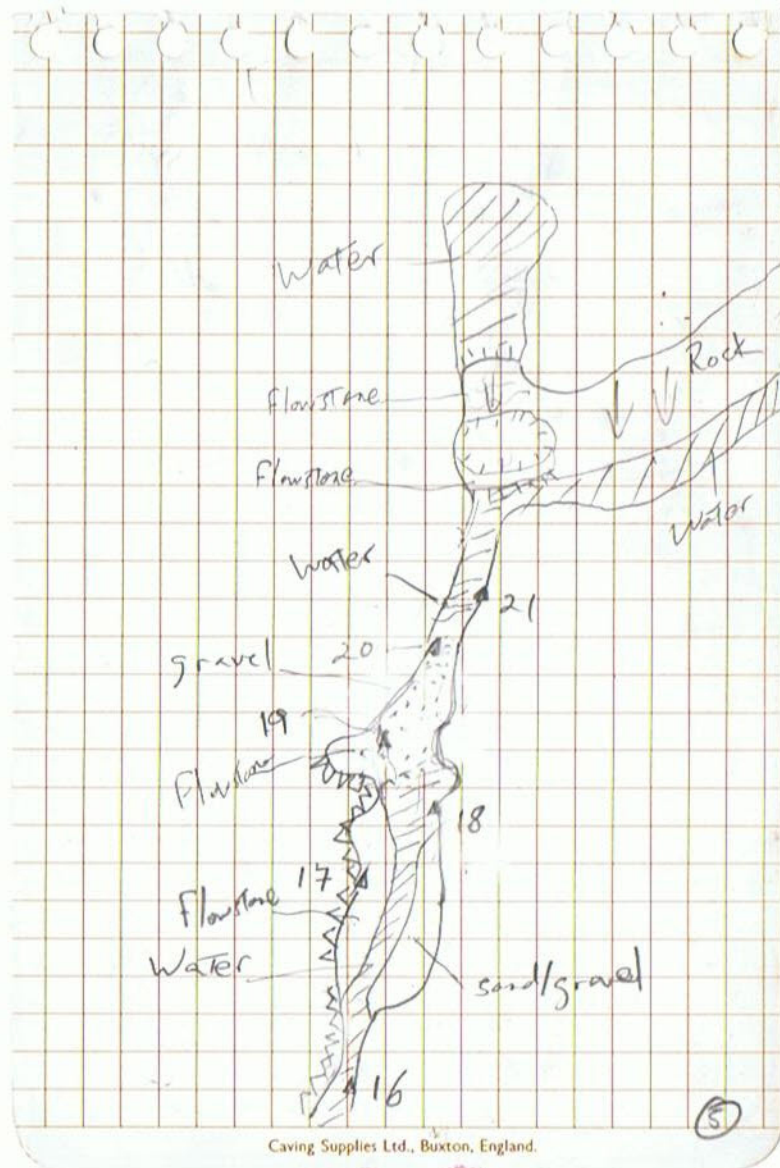 Water
Rock
flowstone
flowstone
Water
Water
21
20
gravel
19
Flowstone
18
17
flowstone
Water
sand/gravel
16
5
Caving Supplies Ltd., Buxton, England.